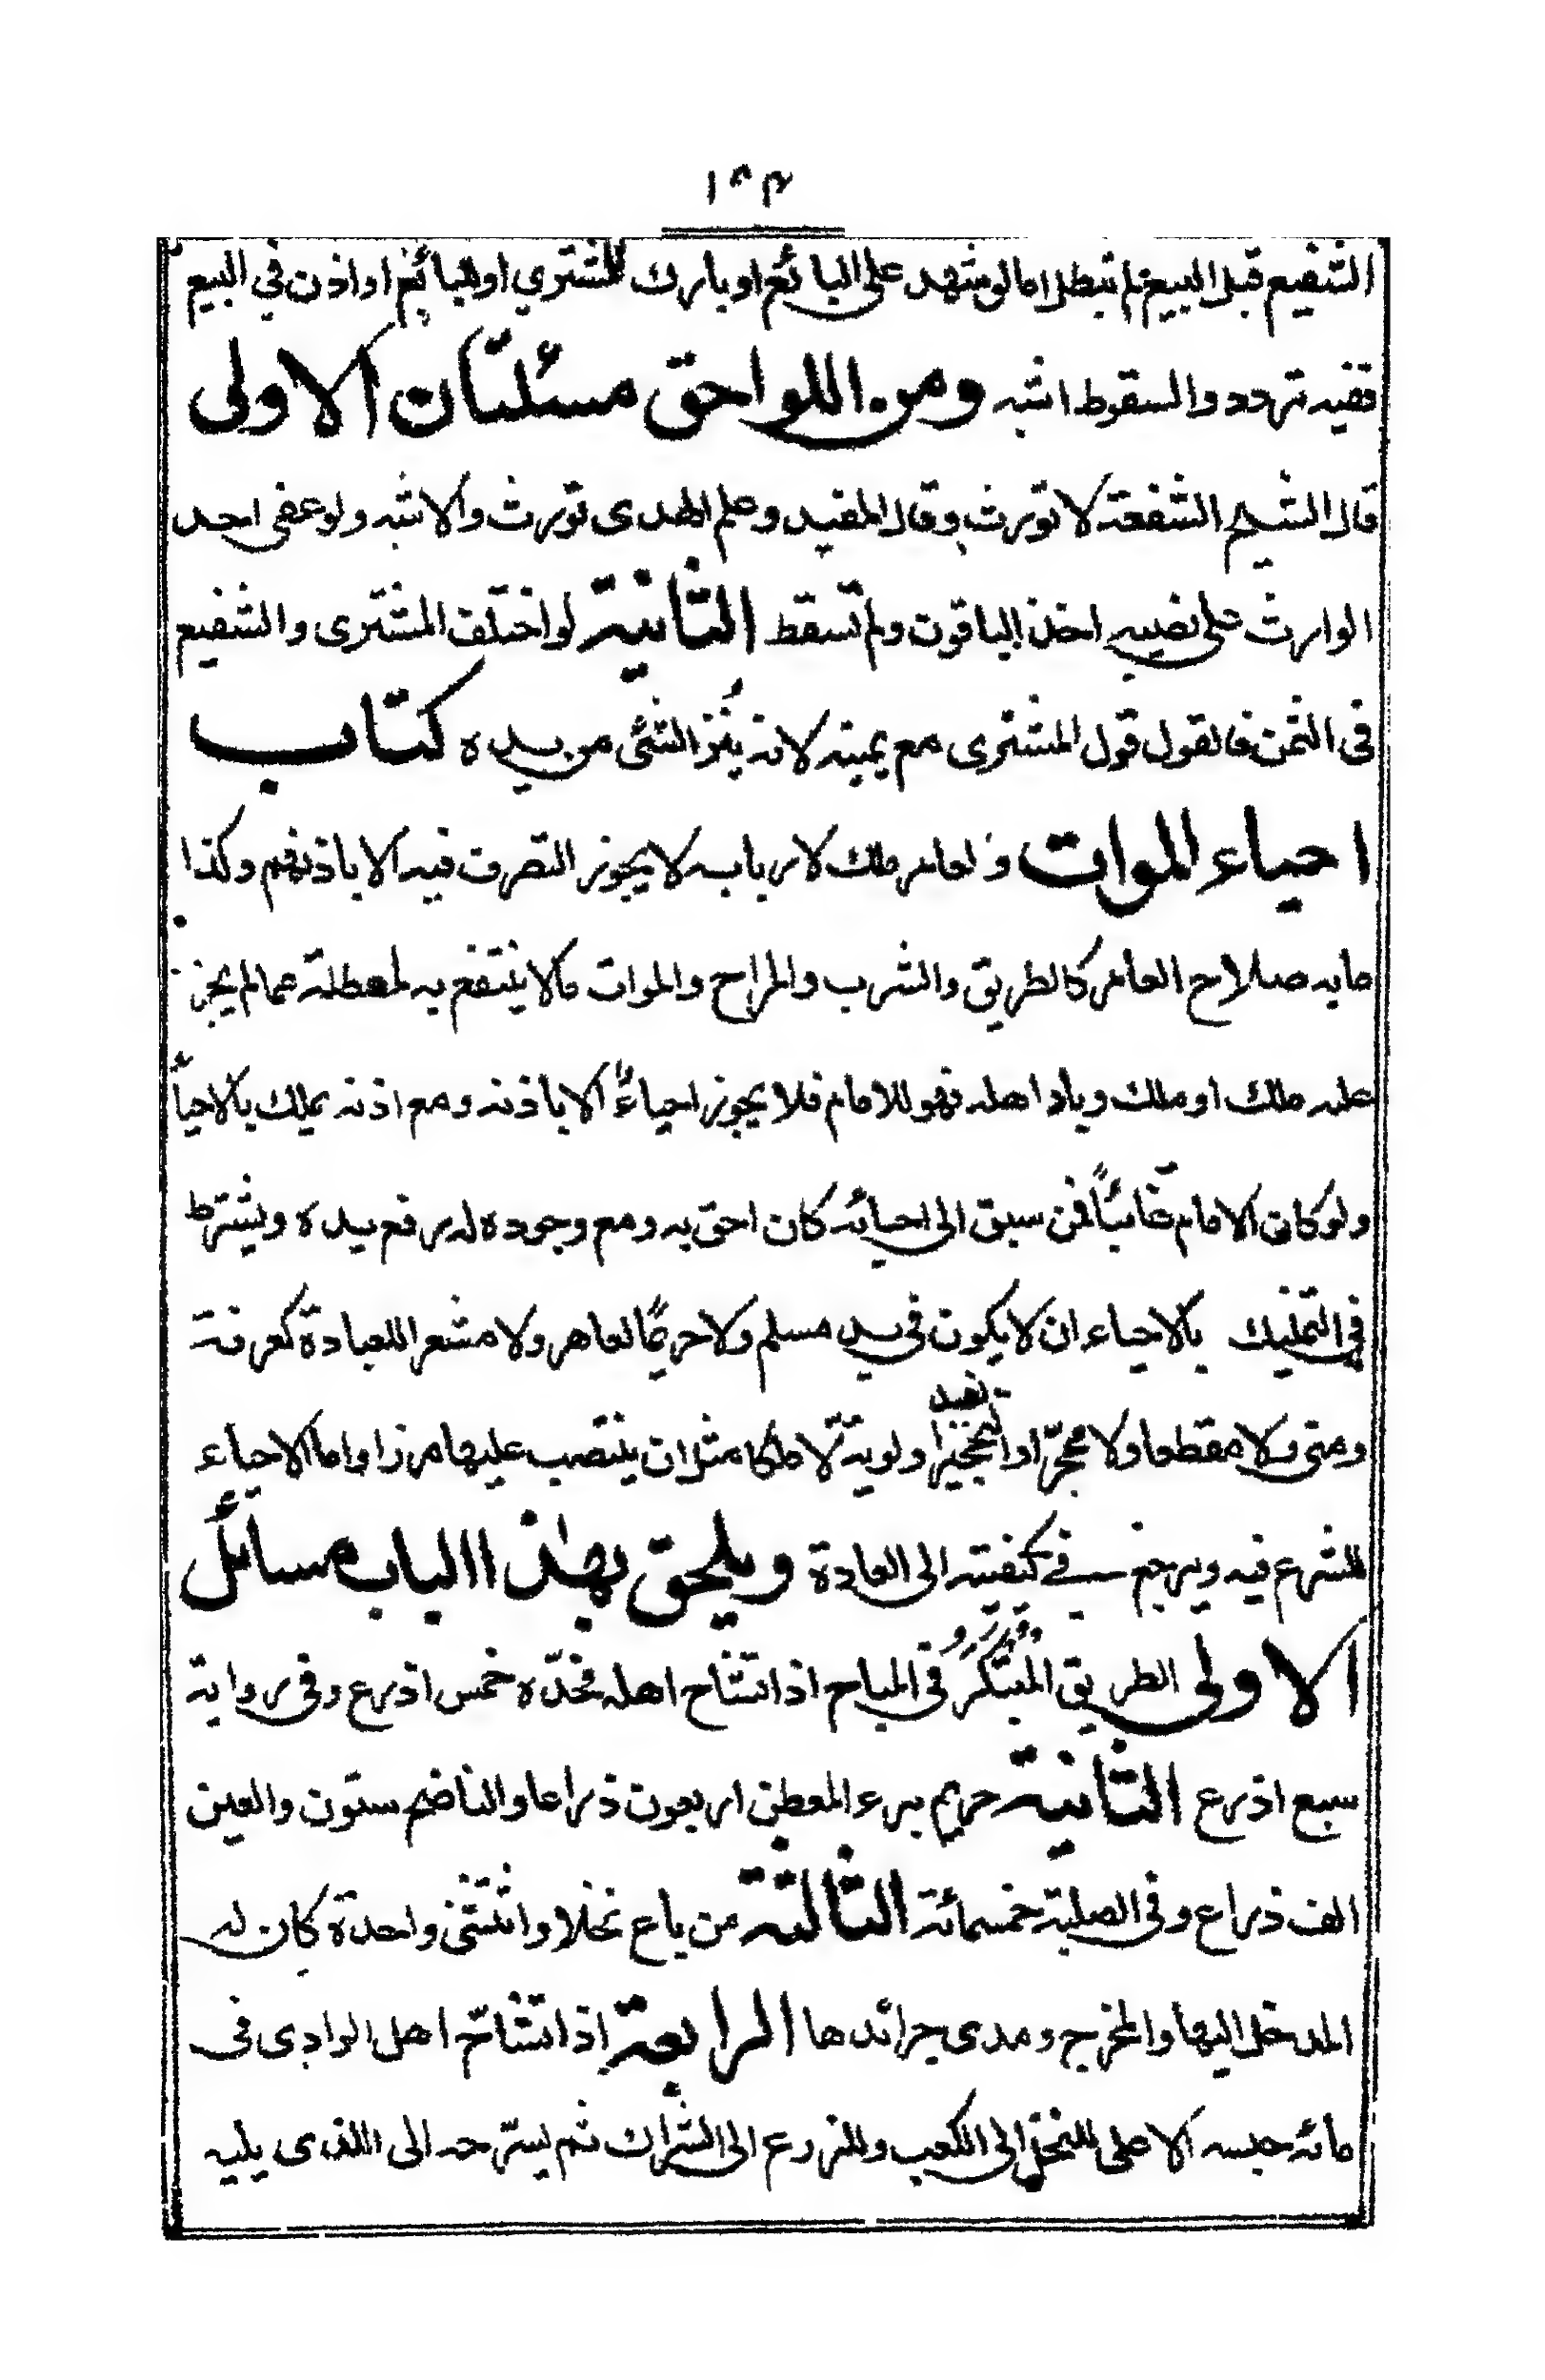 ١٥٤
الشفيع قبل البيع لم تبطل اما لو شهد على البائع او بارك للمشتري او للبائع او اذن في البيع
ففيه تردد والسقوط اشبه ومن اللواحق مسئلتان الاولى
قال الشيخ الشفعة لا تورث وقال المفيد وعلم الهدى تورث والاشبه ولو عفى احد
الوارث على نصيبه اخذ الباقون ولم تسقط الثانية لو اختلف المشترى والشفيع
فى الثمن فالقول قول المشترى مع يمينه لانه ينزع الشئى من يده كتاب
احياء الموات والعامر ملك لاربابه لا يجوز التصرف فيه الا باذنهم وكذا
مابه صلاح العامر كالطريق والشرب والمراح والموات مالا ينتفع به لعطلة عمالم يجز
عليه ملك او ملك وباد اهله فهو للامام فلا يجوز احياءُ الا باذنه ومع اذنه يملك بالاحياء
ولو كان الامام غائباً فمن سبق الى احيائه كان احق به ومع وجوده له رفع يده ويشترط
فى التمليك بالاحياء ان لا يكون فى يد مسلم ولا حريمًا لعامر ولا مشعرا للعبادة كعرفة
ومنى ولا مقطعا ولا محجّرا والتحجير يفيد اولوية لا ملكا مثل ان ينصب عليها مرزا واما الاحياء
للشرع فيه ويرجع في كيفيته الى العادة ويلحق بهذا الباب مسائل
الاولى الطريق المبتكر فى المباح اذا تشاح اهله فحدّه خمس اذرع وفى رواية
سبع اذرع الثانية حريم بيرء المعطن اربعون ذراعا والناضح ستون والعين
الف ذراع وفى الصلبة خمسمائة الثالثة من باع نخلا واستثنى واحدة كان له
المدخل اليها والمخرج ومدى جرائدها الرابعة اذا تشاح اهل الوادى فى
مائه حبسه الاعلى للنخل الى الكعب وللزرع الى الشراك ثم يسترحه الى الذى يليه